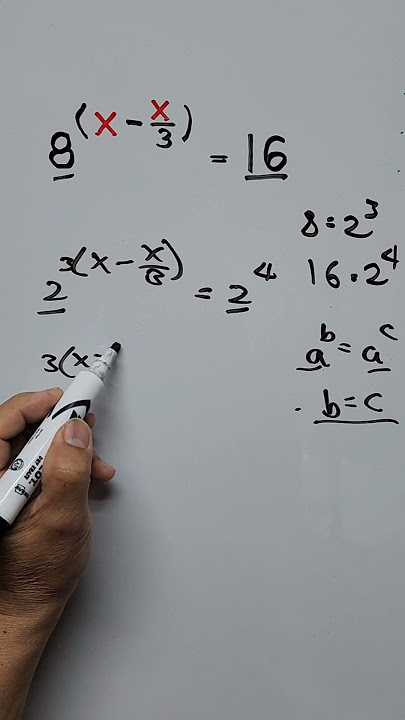 8^(x - x/3) = 16
8 = 2^3
2^3(x - x/3) = 2^4
16 = 2^4
a^b = a^c
3(x -
. b = c